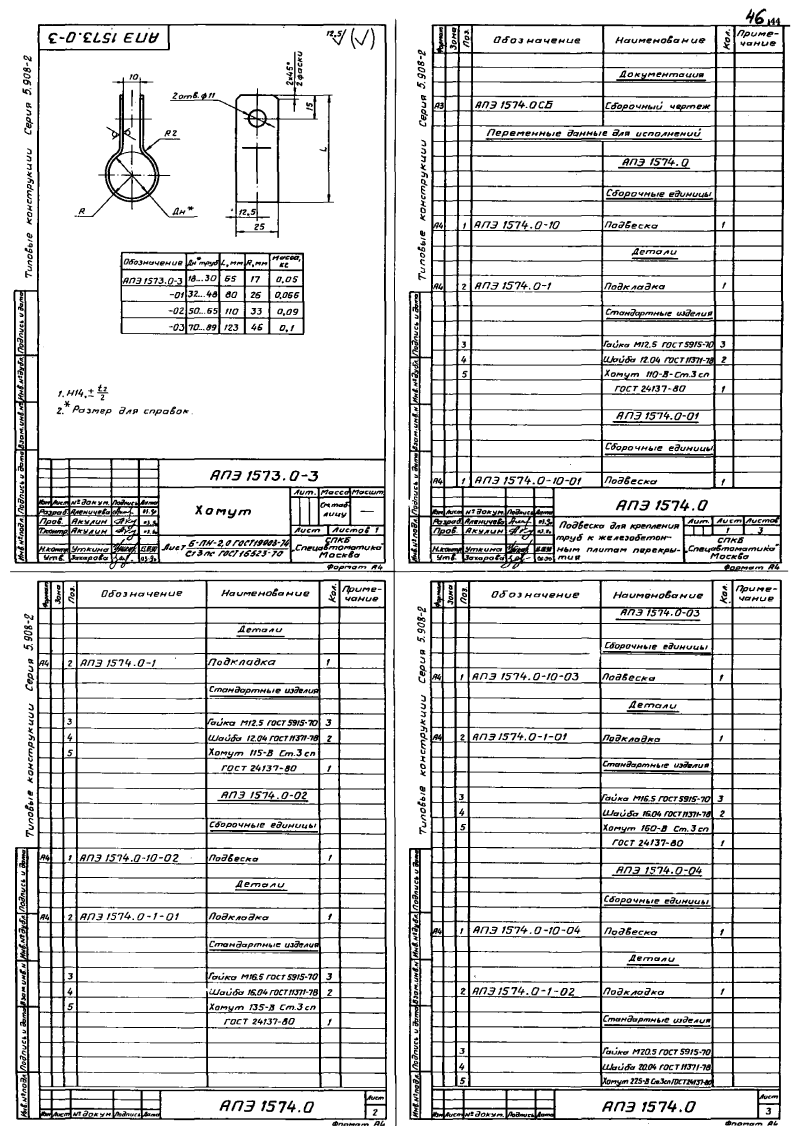 46 144
АПЭ 1573.0-3
12,5/ (√)
Типовые конструкции Серия 5.908-2
10
2 отв. ф11
2x45°
2 фаски
15
R2
L
R
Дн*
12,5
25
Обозначение Дн* труб L, мм R, мм Масса, кг
АПЭ 1573.0-3 18...30 65 17 0,05
-01 32...48 80 26 0,066
-02 50...65 110 33 0,09
-03 70...89 123 46 0,1
1. H14, ± t2/2
2.* Размер для справок.
АПЭ 1573.0-3
Хомут
Лит. Масса Масшт.
См. таблицу —
Лист Листов 1
Изм Лист № докум. Подпись Дата
Разраб. Аленичева
Пров. Акулин
Т.контр. Акулин
Н.контр. Уткина
Утв. Захарова
Лист Б-ПН-2,0 ГОСТ 19903-74
Ст 3 пс ГОСТ 16523-70
СПКБ
"Спецавтоматика"
Москва
Формат А4
Инв.№ подл. Подпись и дата Взам.инв.№ Инв.№ дубл. Подпись и дата
Типовые конструкции Серия 5.908-2
Формат Зона Поз. Обозначение Наименование Кол. Примечание
Документация
А3 АПЭ 1574.0 СБ Сборочный чертеж
Переменные данные для исполнений
АПЭ 1574.0
Сборочные единицы
А4 1 АПЭ 1574.0-10 Подвеска 1
Детали
А4 2 АПЭ 1574.0-1 Подкладка 1
Стандартные изделия
3 Гайка М12.5 ГОСТ 5915-70 3
4 Шайба 12.04 ГОСТ 11371-78 2
5 Хомут 110-В-Ст.3 сп
ГОСТ 24137-80 1
АПЭ 1574.0-01
Сборочные единицы
А4 1 АПЭ 1574.0-10-01 Подвеска 1
АПЭ 1574.0
Изм Лист № докум. Подпись Дата
Разраб. Аленичева
Пров. Акулин
Н.контр. Уткина
Утв. Захарова
Подвеска для крепления
труб к железобетон-
ным плитам перекры-
тия
Лит. Лист Листов
1 3
СПКБ
"Спецавтоматика"
Москва
Формат А4
Инв.№ подл. Подпись и дата Взам.инв.№ Инв.№ дубл. Подпись и дата
Типовые конструкции Серия 5.908-2
Формат Зона Поз. Обозначение Наименование Кол. Примечание
Детали
А4 2 АПЭ 1574.0-1 Подкладка 1
Стандартные изделия
3 Гайка М12.5 ГОСТ 5915-70 3
4 Шайба 12.04 ГОСТ 11371-78 2
5 Хомут 115-В Ст.3 сп
ГОСТ 24137-80 1
АПЭ 1574.0-02
Сборочные единицы
А4 1 АПЭ 1574.0-10-02 Подвеска 1
Детали
А4 2 АПЭ 1574.0-1-01 Подкладка 1
Стандартные изделия
3 Гайка М16.5 ГОСТ 5915-70 3
4 Шайба 16.04 ГОСТ 11371-78 2
5 Хомут 135-В Ст.3 сп
ГОСТ 24137-80 1
Изм Лист № докум. Подпись Дата
АПЭ 1574.0
Лист
2
Формат А4
Инв.№ подл. Подпись и дата Взам.инв.№ Инв.№ дубл. Подпись и дата
Типовые конструкции Серия 5.908-2
Формат Зона Поз. Обозначение Наименование Кол. Примечание
АПЭ 1574.0-03
Сборочные единицы
А4 1 АПЭ 1574.0-10-03 Подвеска 1
Детали
А4 2 АПЭ 1574.0-1-01 Подкладка 1
Стандартные изделия
3 Гайка М16.5 ГОСТ 5915-70 3
4 Шайба 16.04 ГОСТ 11371-78 2
5 Хомут 160-В Ст.3 сп
ГОСТ 24137-80 1
АПЭ 1574.0-04
Сборочные единицы
А4 1 АПЭ 1574.0-10-04 Подвеска 1
Детали
2 АПЭ 1574.0-1-02 Подкладка 1
Стандартные изделия
3 Гайка М20.5 ГОСТ 5915-70
4 Шайба 20.04 ГОСТ 11371-78
5 Хомут 225-В Ст.3сп ГОСТ 24137-80
Изм Лист № докум. Подпись Дата
АПЭ 1574.0
Лист
3
Формат А4
Инв.№ подл. Подпись и дата Взам.инв.№ Инв.№ дубл. Подпись и дата